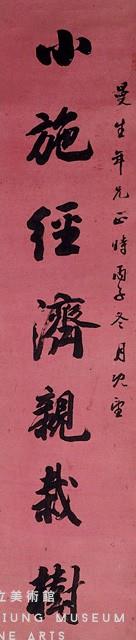 曼生年兄正時丙子冬月次雲
小施經濟親栽樹
立美術館
IUNG MUSEUM
NE ARTS